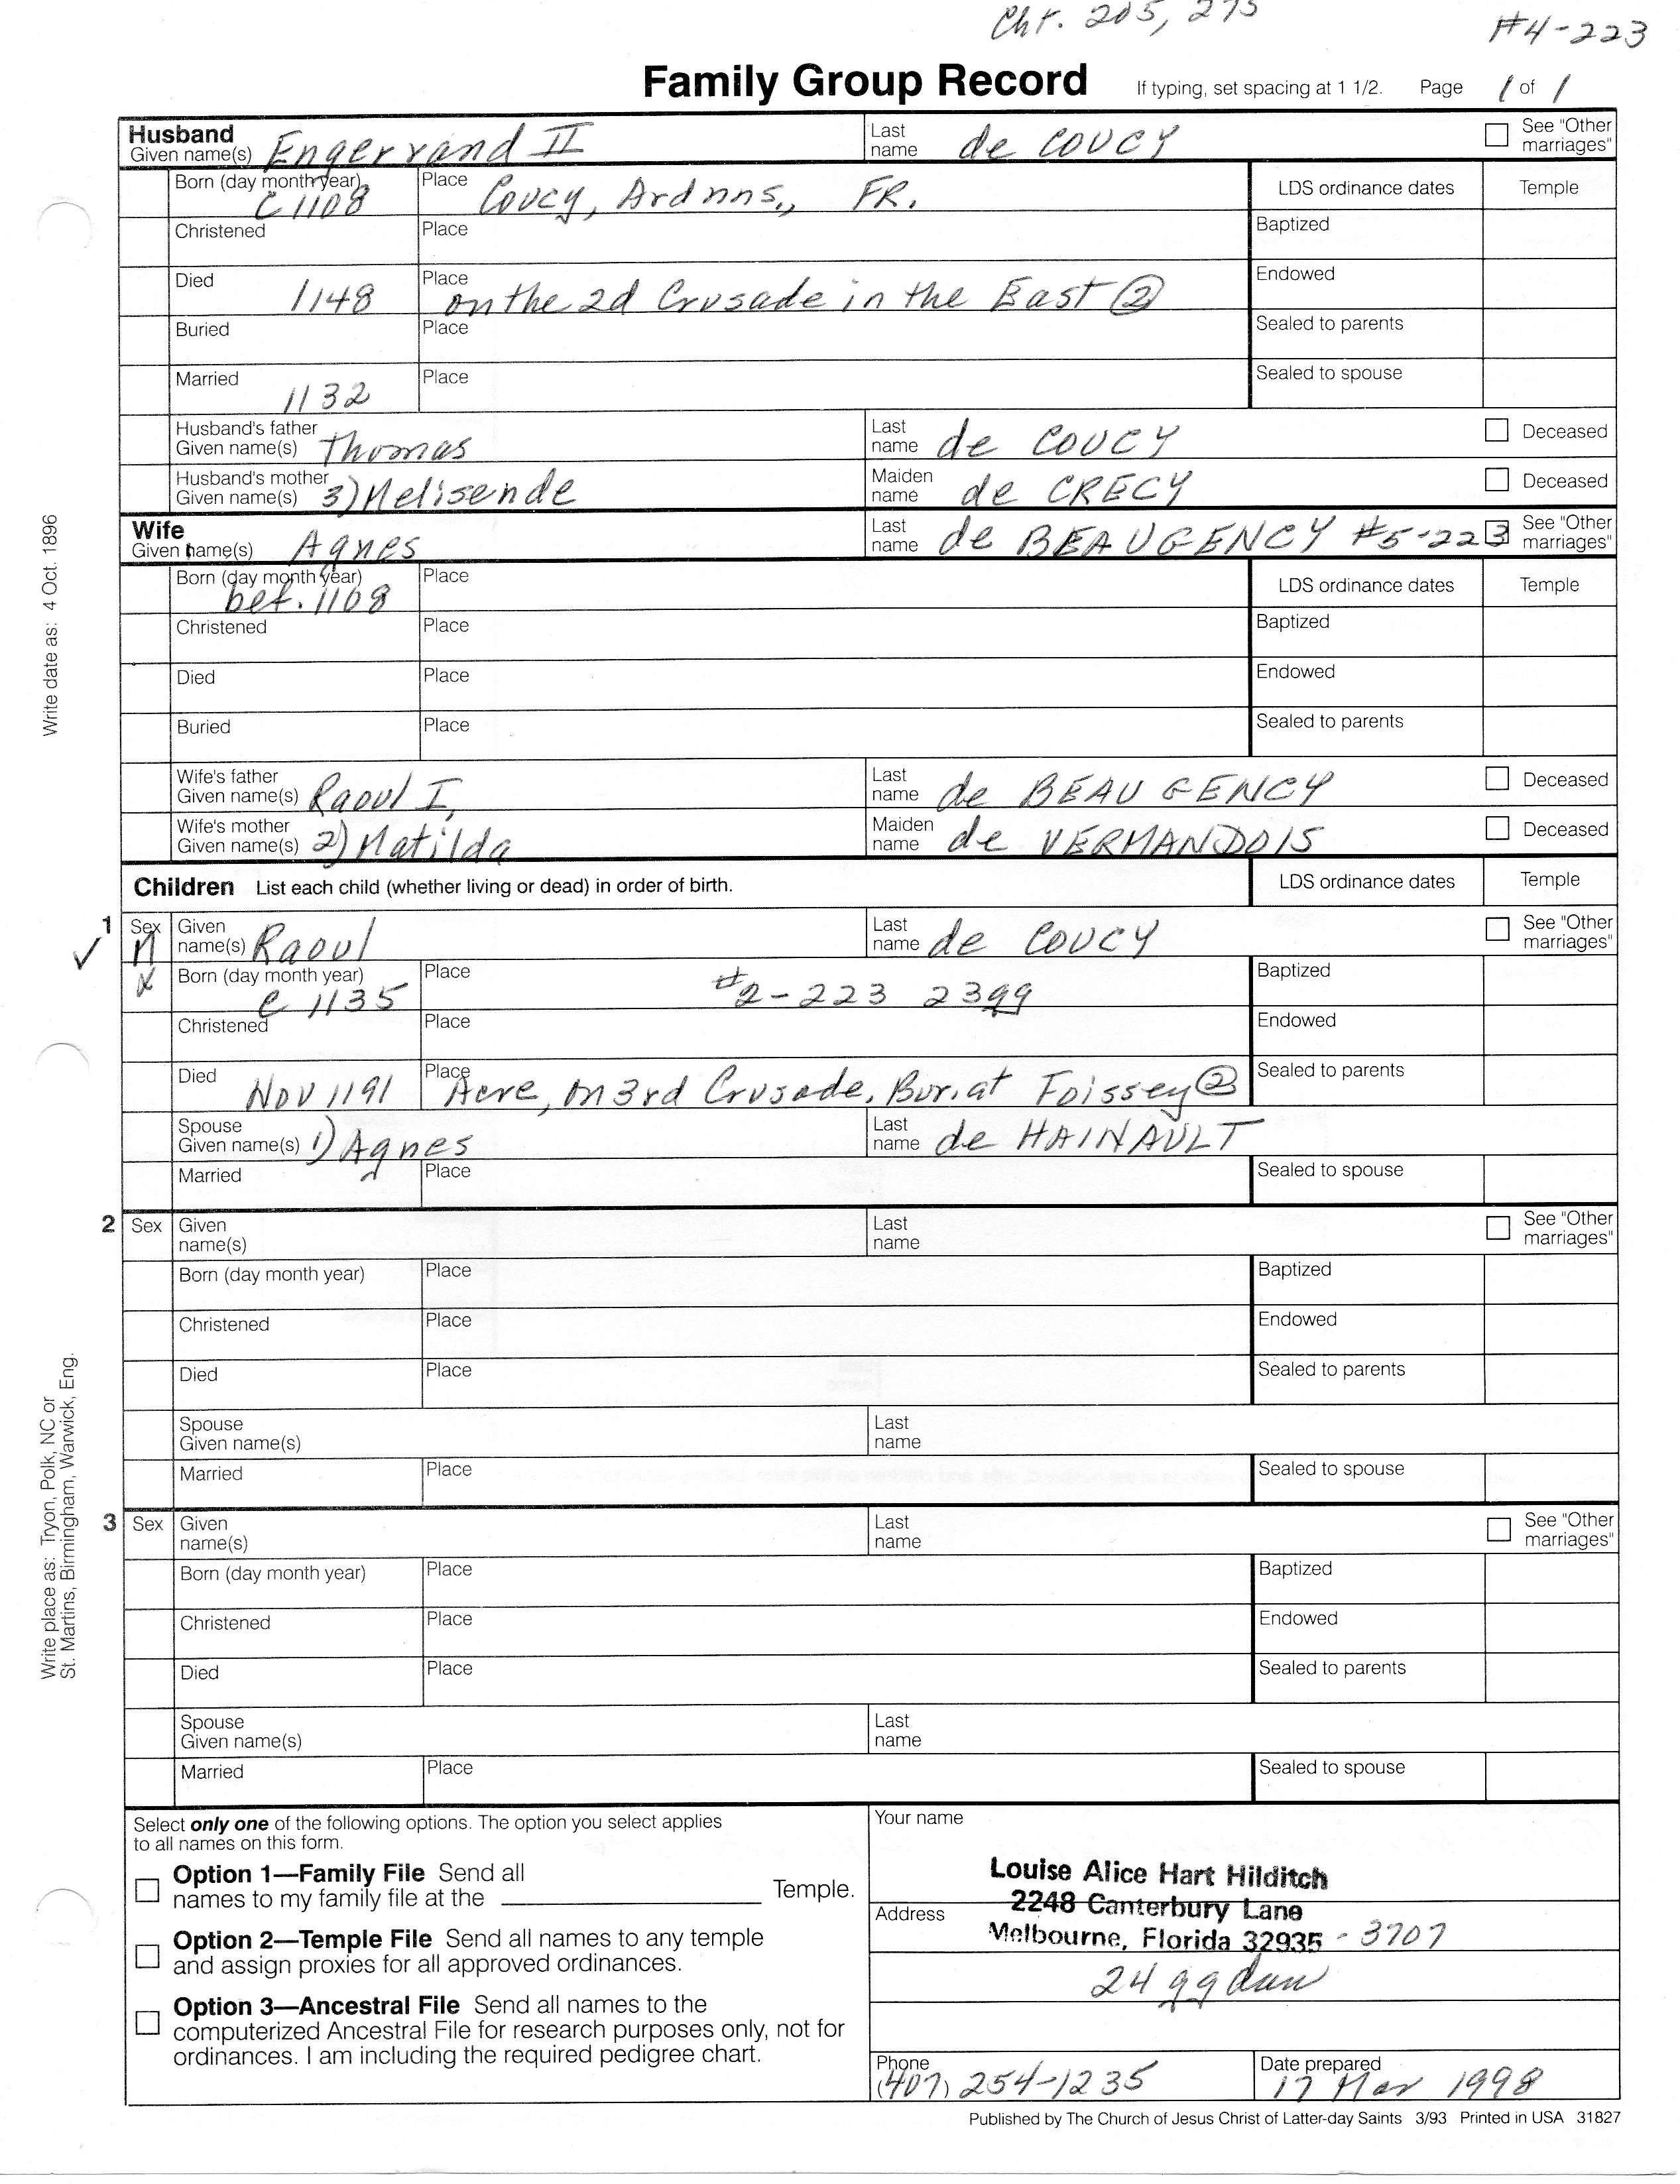 Cht. 205, 275 #4-223
Family Group Record If typing, set spacing at 1 1/2. Page 1 of 1
Husband Given name(s) Engerrand II Last name de COUCY See "Other marriages"
Born (day month year) c 1108 Place Coucy, Ardnns., FR. LDS ordinance dates Temple
Christened Place Baptized
Died 1148 Place on the 2d Crusade in the East ② Endowed
Buried Place Sealed to parents
Married 1132 Place Sealed to spouse
Husband's father Given name(s) Thomas Last name de COUCY Deceased
Husband's mother Given name(s) 3) Melisende Maiden name de CRECY Deceased
Wife Given name(s) Agnes Last name de BEAUGENCY #5-223 See "Other marriages"
Born (day month year) bef. 1108 Place LDS ordinance dates Temple
Christened Place Baptized
Died Place Endowed
Buried Place Sealed to parents
Wife's father Given name(s) Raoul I, Last name de BEAUGENCY Deceased
Wife's mother Given name(s) 2) Matilda Maiden name de VERMANDOIS Deceased
Children List each child (whether living or dead) in order of birth. LDS ordinance dates Temple
1 Sex M Given name(s) Raoul Last name de COUCY See "Other marriages"
✓ X Born (day month year) c 1135 Place #2-223 23gg Baptized
Christened Place Endowed
Died Nov 1191 Place Acre, on 3rd Crusade, Bur. at Foissey ② Sealed to parents
Spouse Given name(s) 1) Agnes Last name de HAINAULT
Married Place Sealed to spouse
2 Sex Given name(s) Last name See "Other marriages"
Born (day month year) Place Baptized
Christened Place Endowed
Died Place Sealed to parents
Spouse Given name(s) Last name
Married Place Sealed to spouse
3 Sex Given name(s) Last name See "Other marriages"
Born (day month year) Place Baptized
Christened Place Endowed
Died Place Sealed to parents
Spouse Given name(s) Last name
Married Place Sealed to spouse
Write date as: 4 Oct. 1896
Write place as: Tryon, Polk, NC or
St. Martins, Birmingham, Warwick, Eng.
Select only one of the following options. The option you select applies
to all names on this form.
Option 1—Family File Send all
names to my family file at the Temple.
Option 2—Temple File Send all names to any temple
and assign proxies for all approved ordinances.
Option 3—Ancestral File Send all names to the
computerized Ancestral File for research purposes only, not for
ordinances. I am including the required pedigree chart.
Your name
Louise Alice Hart Hilditch
Address 2248 Canterbury Lane
Melbourne, Florida 32935 - 3707
24 gg dau
Phone (407) 254-1235 Date prepared 17 Mar 1998
Published by The Church of Jesus Christ of Latter-day Saints 3/93 Printed in USA 31827